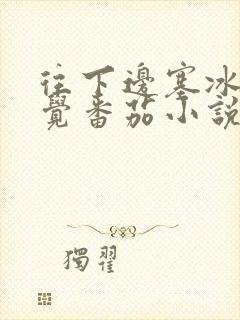 往下邊塞冰
覺番茄小說
獨翟